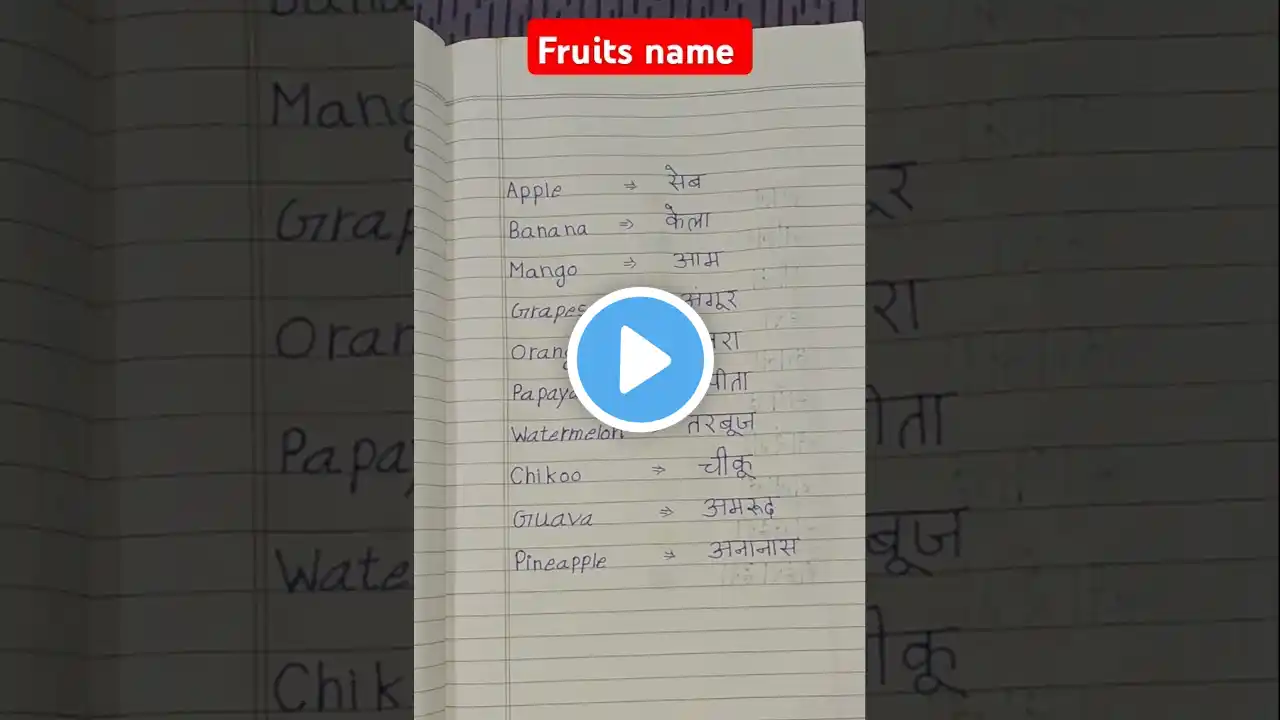 Fruits name
Apple ⇒ सेब
Banana ⇒ केला
Mango ⇒ आम
Grapes अंगूर
Orang
Papaya
Watermelon तरबूज
Chikoo ⇒ चीकू
Guava ⇒ अमरूद
Pineapple ⇒ अनानास